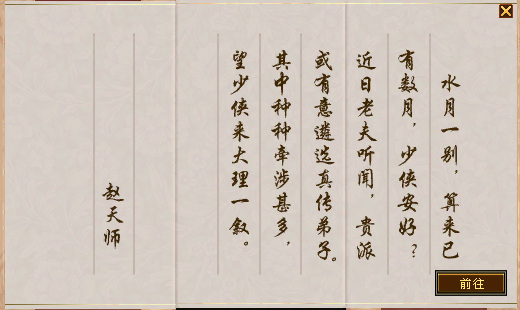 水月一别，算来已
有数月，少侠安好？
近日老夫听闻，贵派
或有意遴选真传弟子。
其中种种牵涉甚多，
望少侠来大理一叙。
赵天师
前往